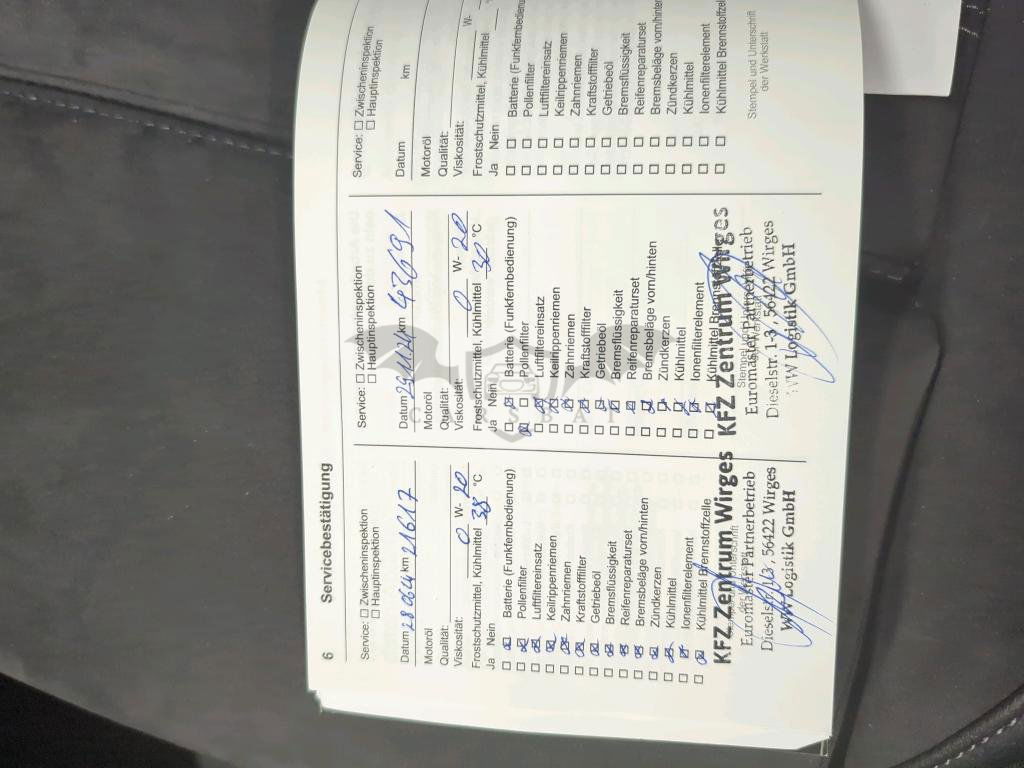 6 Servicebestätigung
Service: ☐ Zwischeninspektion
☐ Hauptinspektion
Datum 28.06.24 km 21617
Motoröl
Qualität:
Viskosität: 0 W- 20
Frostschutzmittel, Kühlmittel 38 °C
Ja Nein
☐ ☒ Batterie (Funkfernbedienung)
☐ ☒ Pollenfilter
☐ ☒ Luftfiltereinsatz
☐ ☒ Keilrippenriemen
☐ ☒ Zahnriemen
☐ ☒ Kraftstofffilter
☐ ☒ Getriebeöl
☐ ☒ Bremsflüssigkeit
☐ ☒ Reifenreparaturset
☐ ☒ Bremsbeläge vorn/hinten
☐ ☒ Zündkerzen
☐ ☒ Kühlmittel
☐ ☒ Ionenfilterelement
☐ ☒ Kühlmittel Brennstoffzelle
KFZ Zentrum Wirges
Euromaster Partnerbetrieb
Dieselstr. 1-3, 56422 Wirges
WW Logistik GmbH
Service: ☐ Zwischeninspektion
☐ Hauptinspektion
Datum 29.11.24 km 43691
Motoröl
Qualität:
Viskosität: 0 W- 20
Frostschutzmittel, Kühlmittel °C
Ja Nein
☐ ☒ Batterie (Funkfernbedienung)
☒ ☐ Pollenfilter
☐ ☒ Luftfiltereinsatz
☐ ☒ Keilrippenriemen
☐ ☒ Zahnriemen
☐ ☒ Kraftstofffilter
☐ ☒ Getriebeöl
☐ ☒ Bremsflüssigkeit
☐ ☒ Reifenreparaturset
☐ ☒ Bremsbeläge vorn/hinten
☐ ☒ Zündkerzen
☐ ☒ Kühlmittel
☐ ☒ Ionenfilterelement
☐ ☒ Kühlmittel
KFZ Zentrum Wirges
Euromaster Partnerbetrieb
Dieselstr. 1-3, 56422 Wirges
WW Logistik GmbH
Service: ☐ Zwischeninspektion
☐ Hauptinspektion
Datum km
Motoröl
Qualität:
Viskosität: W-
Frostschutzmittel, Kühlmittel
Ja Nein
☐ ☐ Batterie (Funkfernbedienung
☐ ☐ Pollenfilter
☐ ☐ Luftfiltereinsatz
☐ ☐ Keilrippenriemen
☐ ☐ Zahnriemen
☐ ☐ Kraftstofffilter
☐ ☐ Getriebeöl
☐ ☐ Bremsflüssigkeit
☐ ☐ Reifenreparaturset
☐ ☐ Bremsbeläge vorn/hinten
☐ ☐ Zündkerzen
☐ ☐ Kühlmittel
☐ ☐ Ionenfilterelement
☐ ☐ Kühlmittel Brennstoffzelle
Stempel und Unterschrift
der Werkstatt